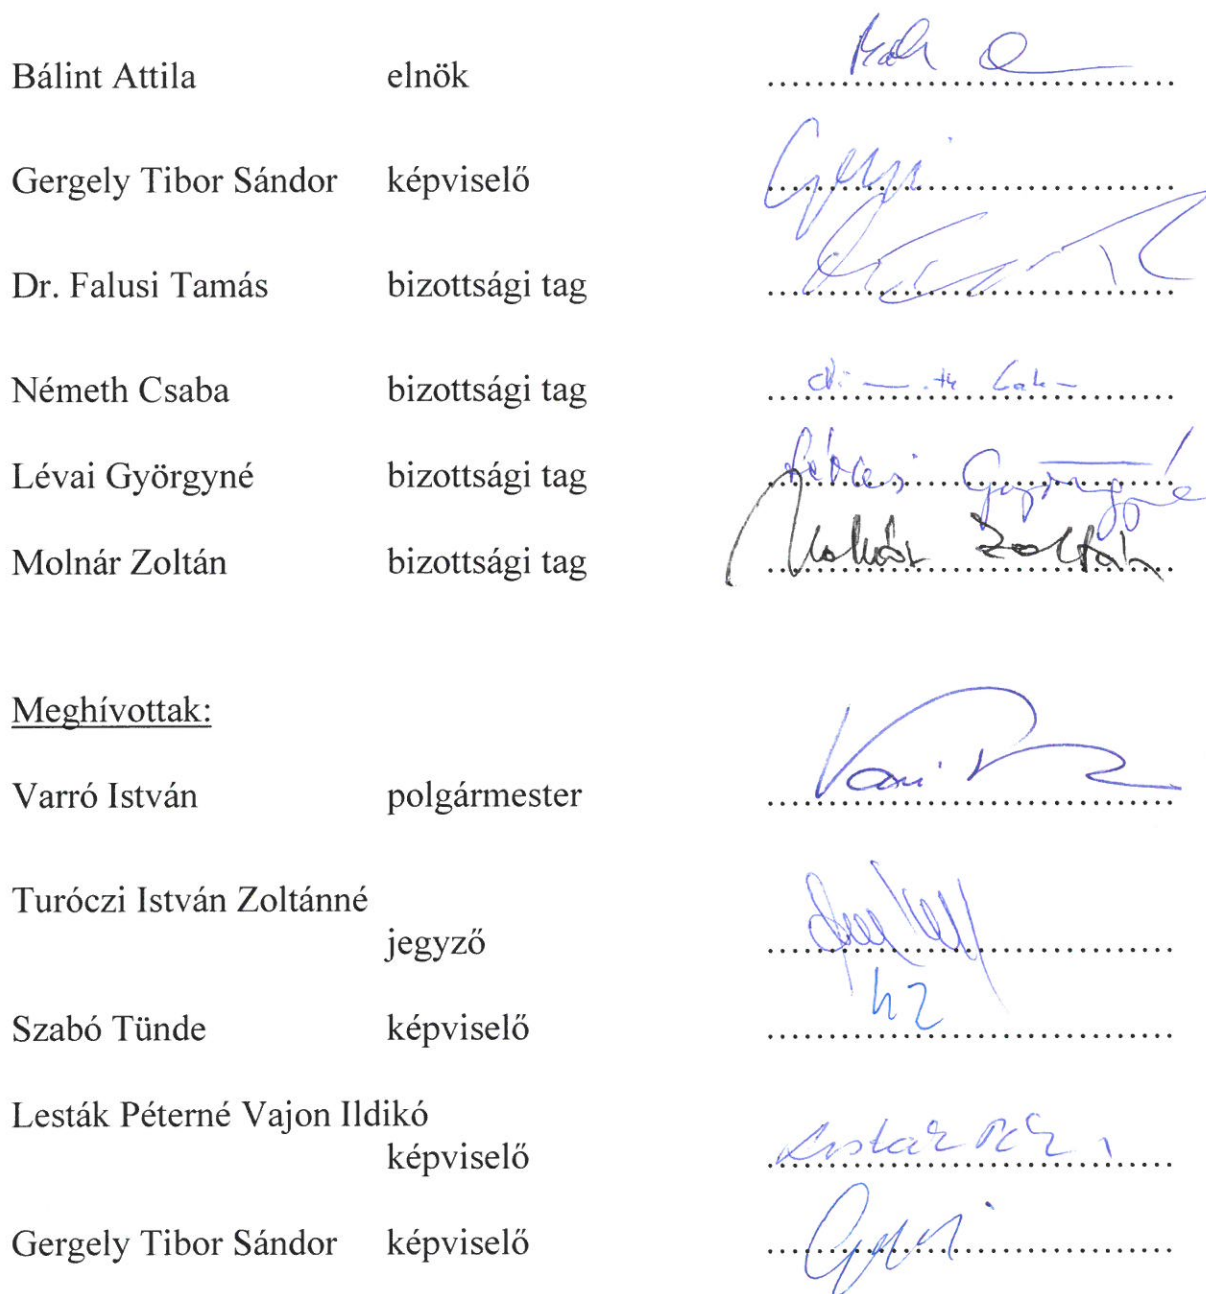 Bálint Attila elnök
Gergely Tibor Sándor képviselő
Dr. Falusi Tamás bizottsági tag
Németh Csaba bizottsági tag
Lévai Györgyné bizottsági tag
Molnár Zoltán bizottsági tag Molnár Zoltán
Meghívottak:
Varró István polgármester
Turóczi István Zoltánné
jegyző
Szabó Tünde képviselő
Lesták Péterné Vajon Ildikó
képviselő
Gergely Tibor Sándor képviselő